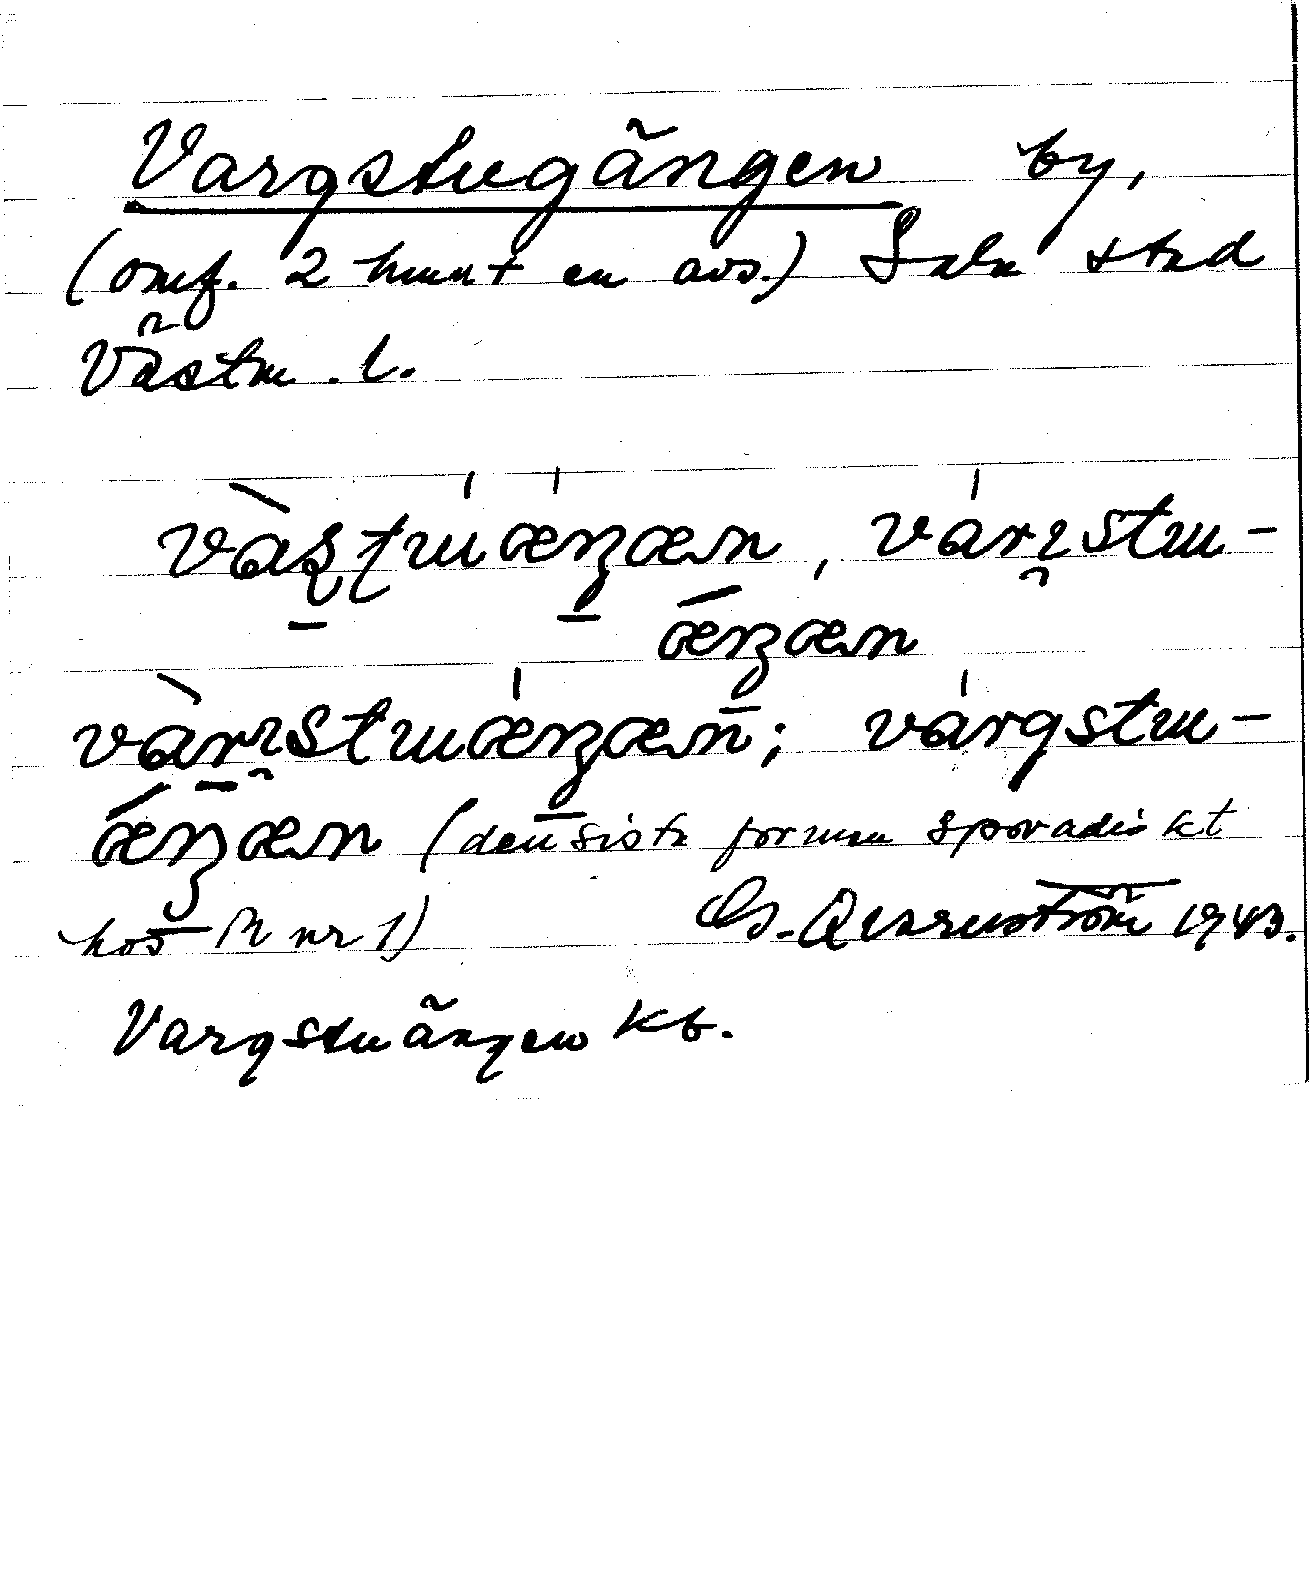 Vargstugängen by,
(omf. 2 hmnt en avs.) Sala stad
Västm. l.
vàʂʈɯæŋæn, várʒstɯ-
ǽŋæn
vàrʒstɯæŋæn; várgstɯ-
ǽŋæn (den sista formen sporadiskt
hos M nr 1)
G. Qvarnström 1943.
Vargstuängen kb.